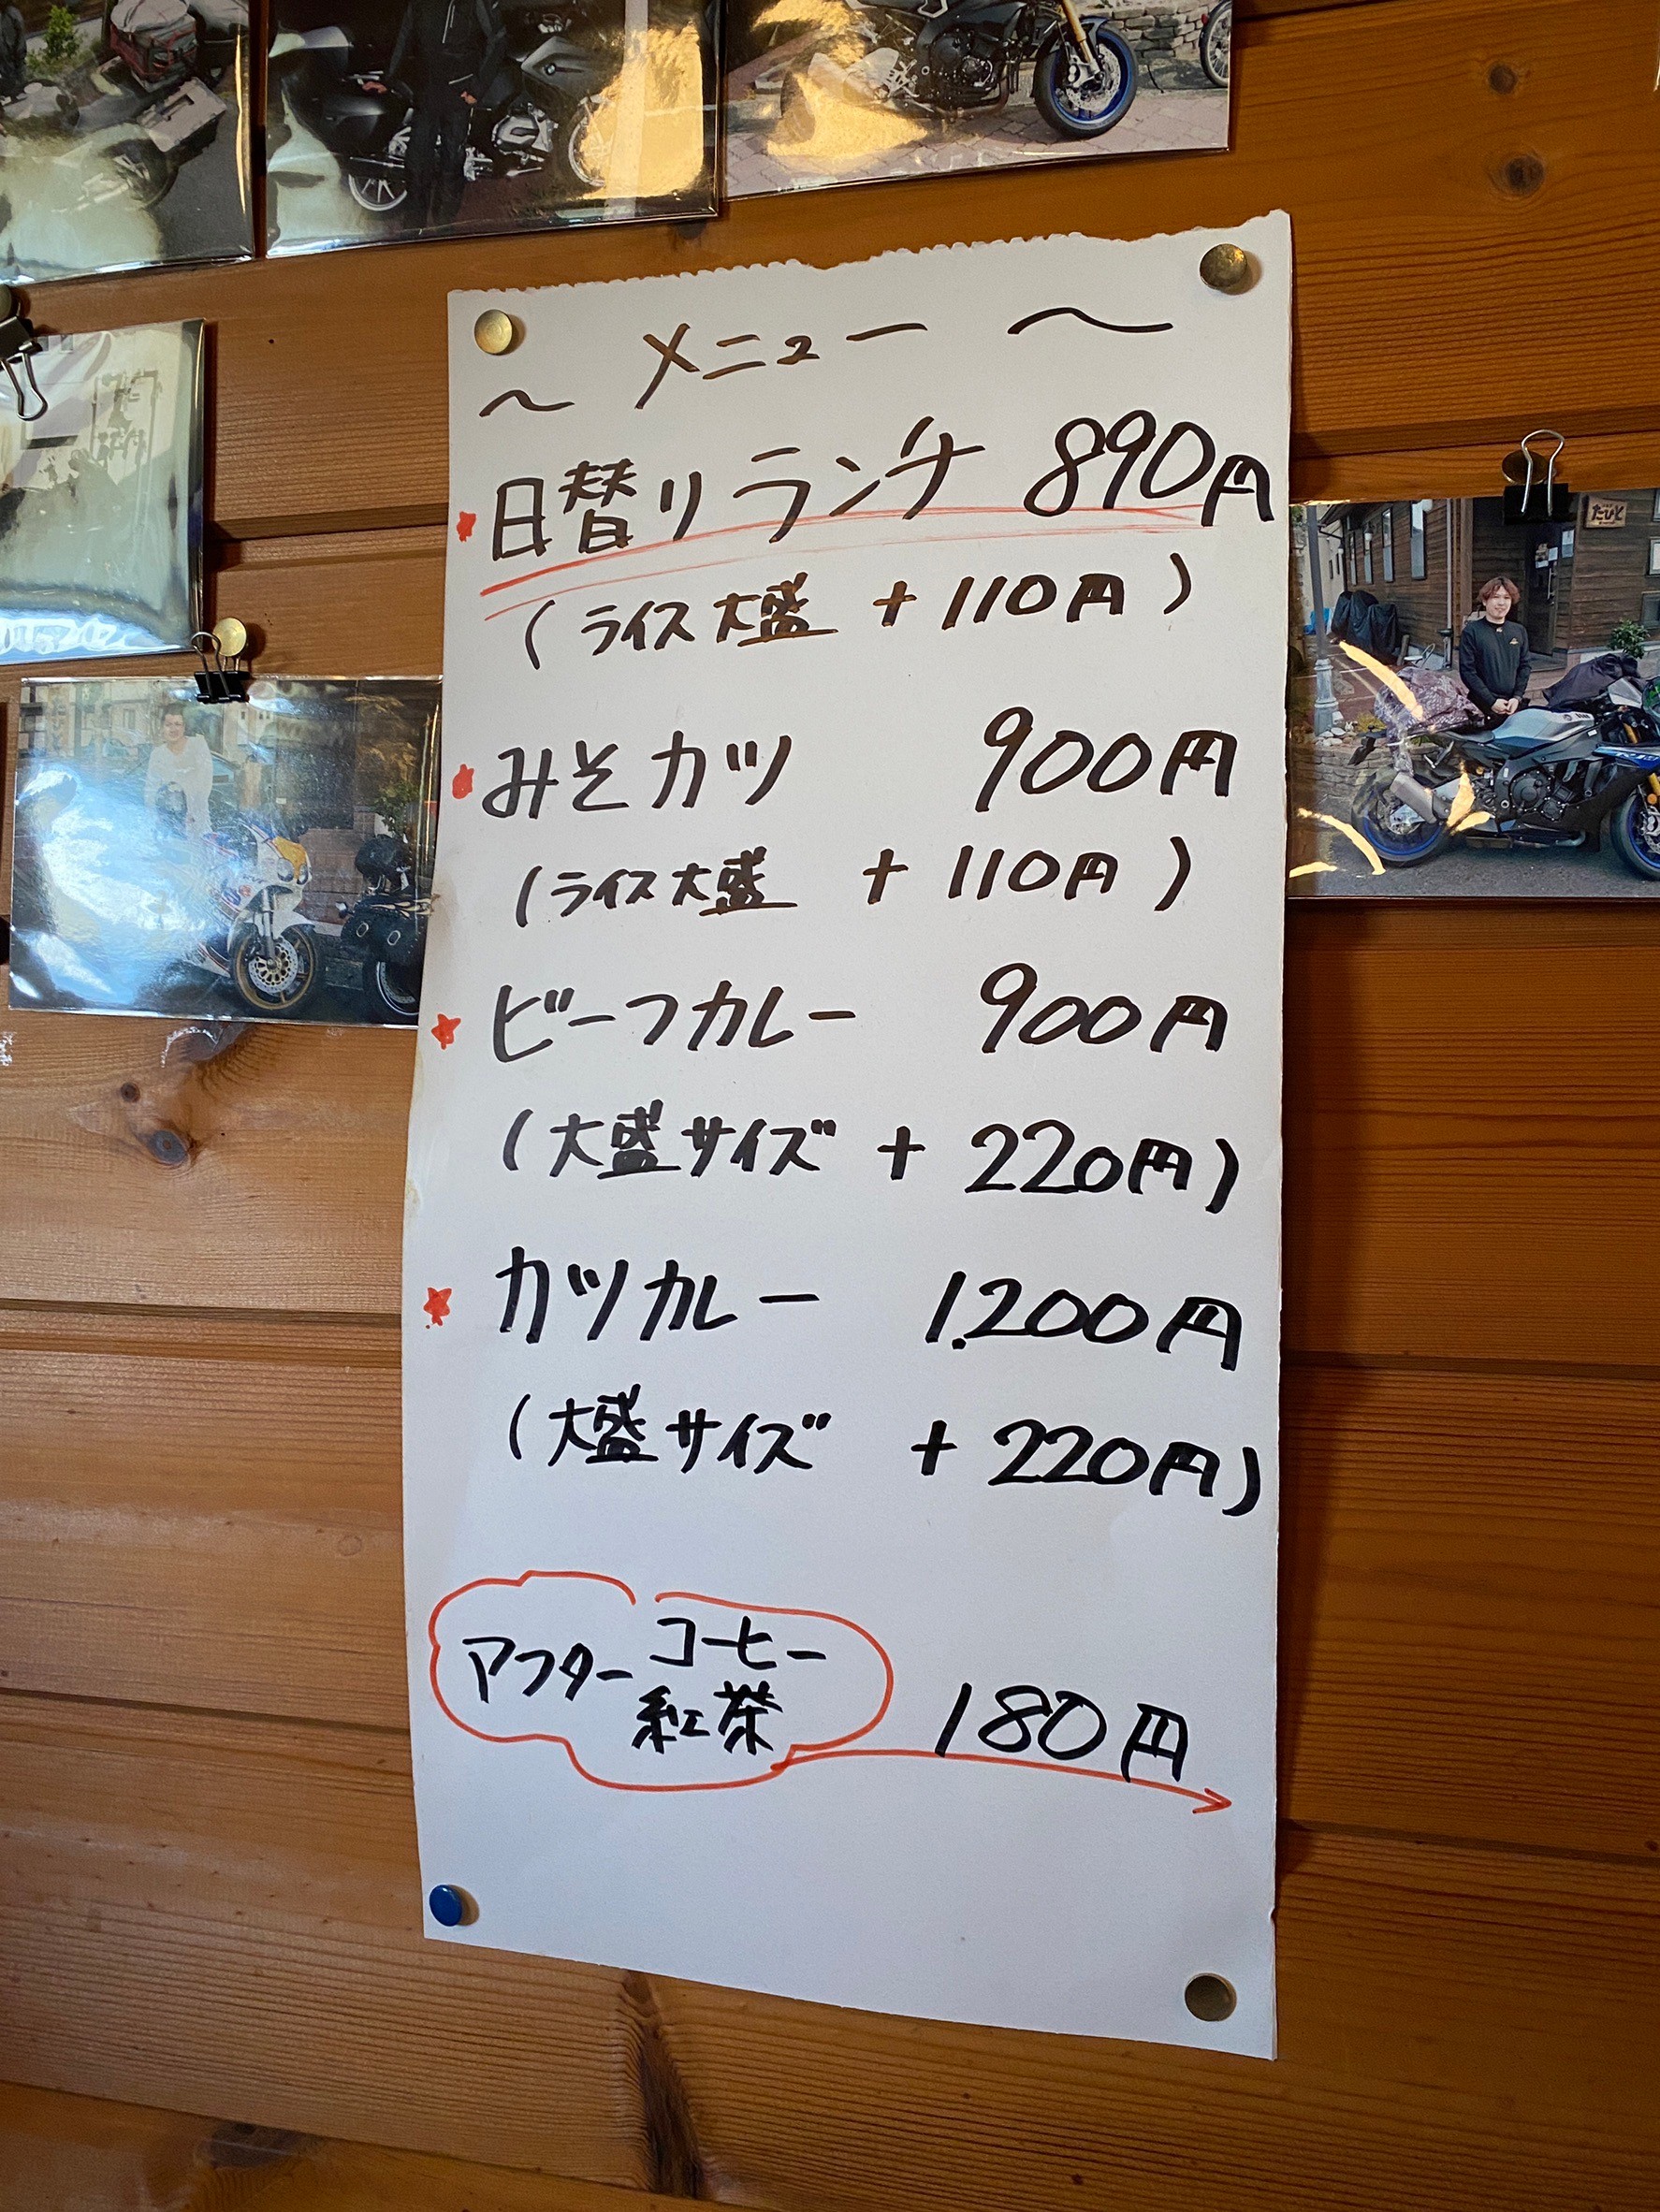 ～ メニュー ～
★ 日替りランチ 890円
(ライス大盛 +110円)
★ みそカツ 900円
(ライス大盛 +110円)
★ ビーフカレー 900円
(大盛サイズ +220円)
★ カツカレー 1.200円
(大盛サイズ +220円)
アフター コーヒー
紅茶 180円
たびと